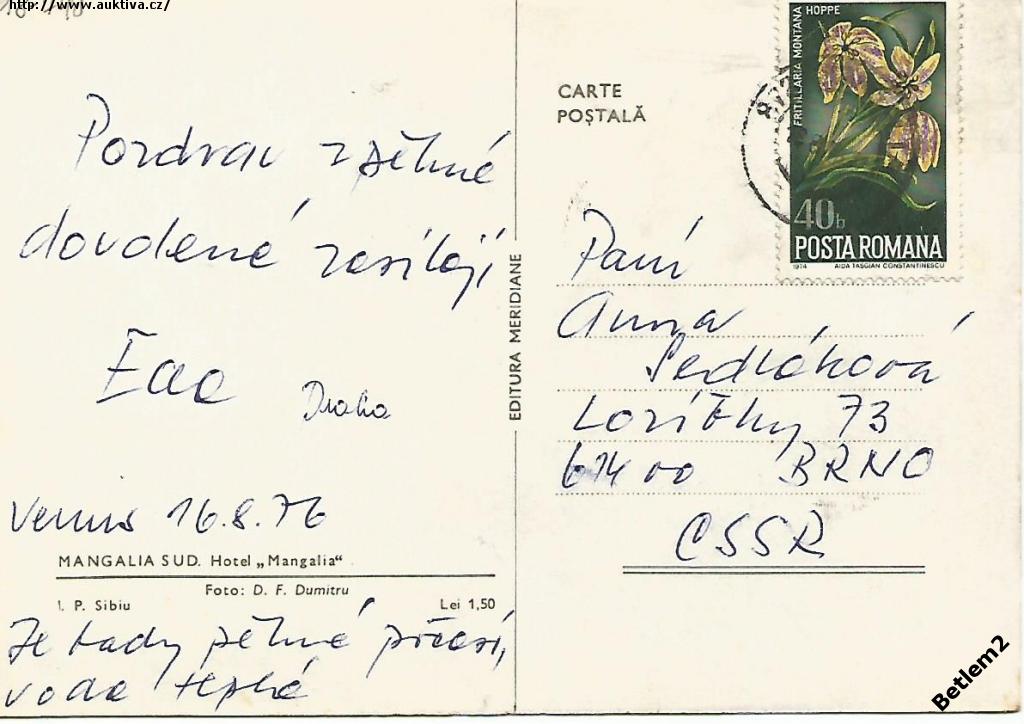 http://www.auktiva.cz/
Pozdrav z pěkné
dovolené zasílají
Eva
Draha
Venus 16.8.76
MANGALIA SUD. Hotel „Mangalia“
Foto: D. F. Dumitru
I. P. Sibiu
Lei 1,50
Je tady pěkné počasí,
voda teplá
EDITURA MERIDIANE
CARTE
POȘTALĂ
FRITILLARIA MONTANA HOPPE
40b
POSTA ROMANA
1974 AIDA TASGIAN CONSTANTINESCU
Paní
Anna
Sedláková
73
614 00 BRNO
ČSSR
Betlem2